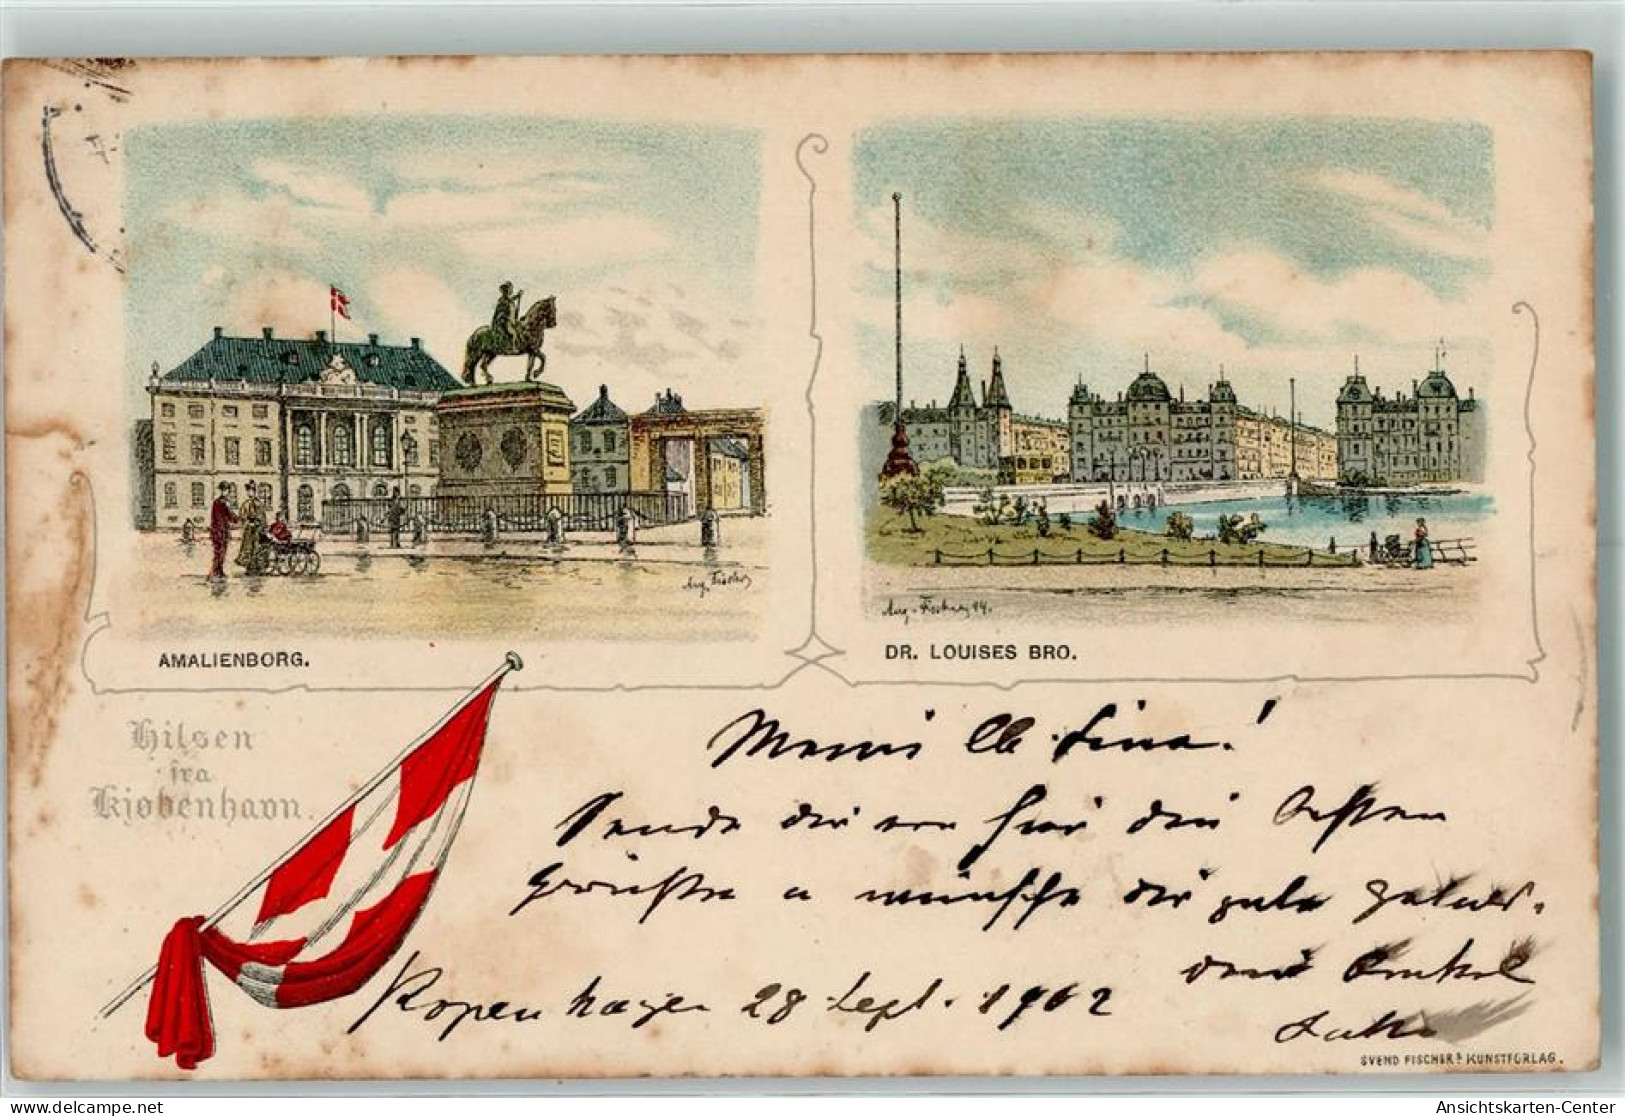 Aug. Fischer
Aug. Fischer 94.
AMALIENBORG.
DR. LOUISES BRO.
Hilsen
fra
Kjøbenhavn.
Meine lb. Lina!
Sende dir von hier die besten
Grüsse u wünsche dir gute
dein Onkel
Kopenhagen 28 Sept. 1902
SVEND FISCHERS KUNSTFORLAG.
Ansichtskarten-Center
delcampe.net